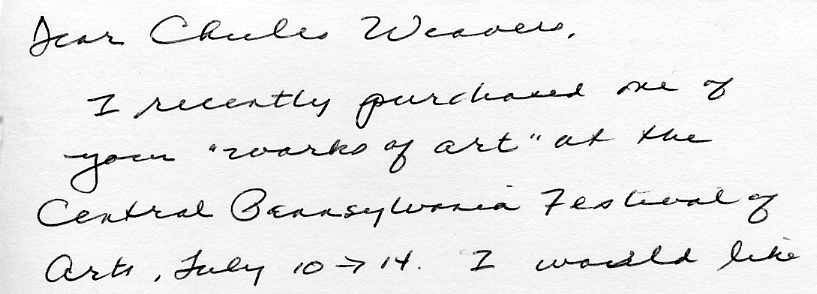 Dear Charles Weavers,
I recently purchased one of
your "works of art" at the
Central Pennsylvania Festival of
Arts, July 10→14. I would like